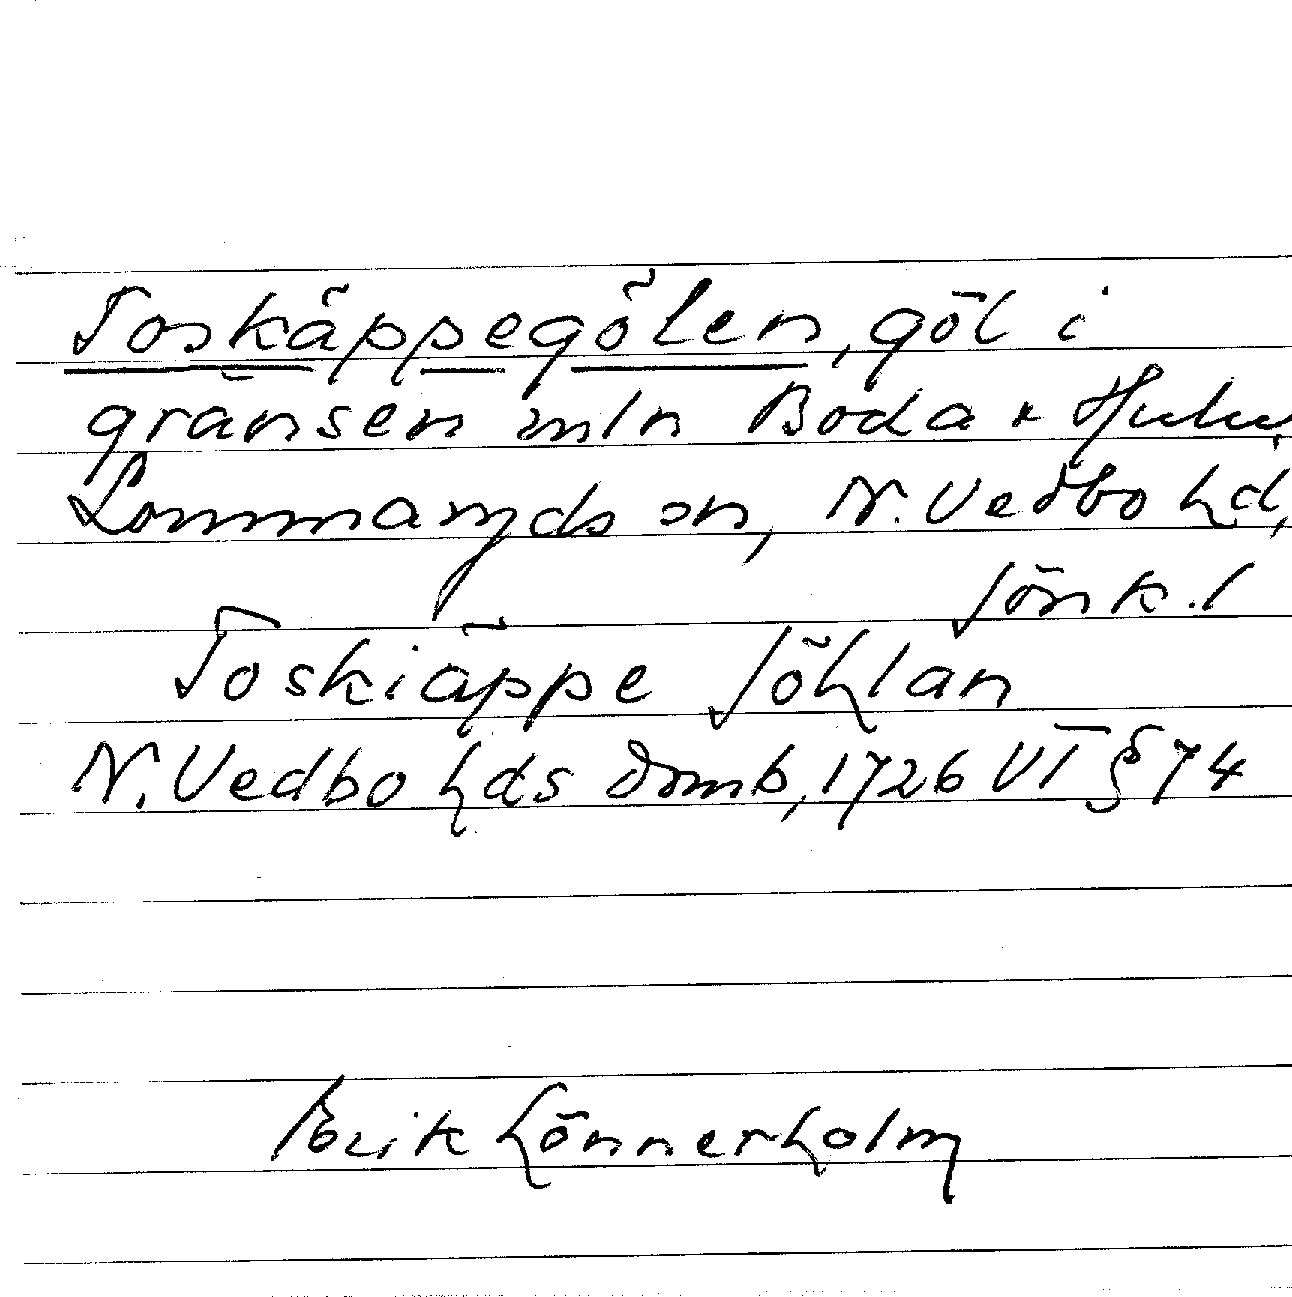 Toskäppegölen, göl i
gränsen mln Boda + Hulu,
Lommaryds sn, N. Vedbo hd,
Jönk. l
Toskiäppe Jöhlan
N. Vedbo hds domb, 1726 VT § 74
Erik Lönnerholm